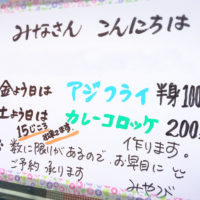 みなさん こんにちは
金よう日は アジフライ 半身100
土よう日は カレーコロッケ 200
15じごろ 出来ます。
作ります。
※数に限りがあるので、お早目に
ご予約承ります
みやうら